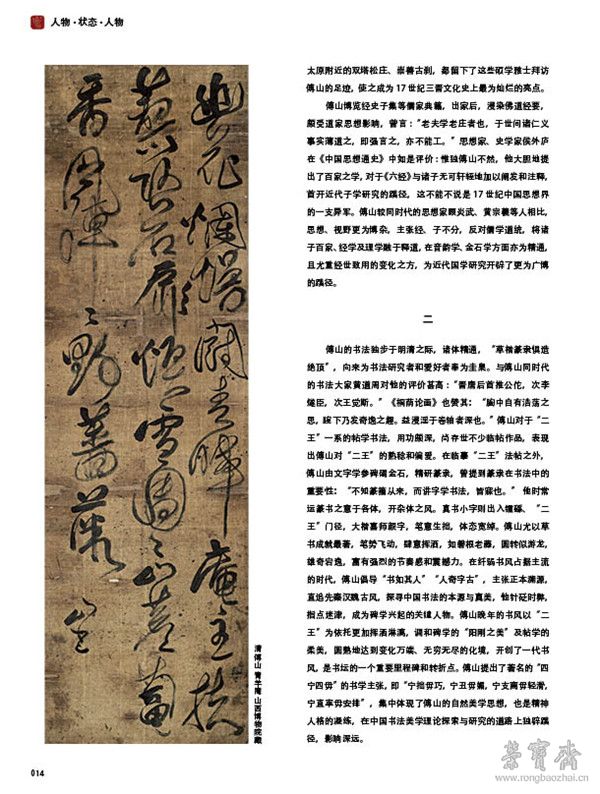 人物·状态·人物
幽花爛熳鬪春暉庵主
香風陣々野薔薇 山
清 傅山 青羊庵 山西博物院藏
太原附近的双塔松庄、崇善古刹，都留下了这些硕学雅士拜访
傅山的足迹，使之成为17世纪三晋文化史上最为灿烂的亮点。
傅山博览经史子集等儒家典籍，出家后，浸染佛道经要，
颇受道家思想影响，曾言：“老夫学老庄者也，于世间诸仁义
事实薄道之，即强言之，亦不能工。”思想家、史学家侯外庐
在《中国思想通史》中如是评价：惟独傅山不然，他大胆地提
出了百家之学，对于《六经》与诸子无可轩轾地加以阐发和注释，
首开近代子学研究的蹊径，这不能不说是17世纪中国思想界
的一支异军。傅山较同时代的思想家顾炎武、黄宗羲等人相比，
思想、视野更为博杂，主张经、子不分，反对儒学道统，将诸
子百家、经学及理学融于释道，在音韵学、金石学方面亦为精通，
且尤重经世致用的变化之方，为近代国学研究开辟了更为广博
的蹊径。
二
傅山的书法独步于明清之际，诸体精通，“草楷篆隶俱造
绝顶”，向来为书法研究者和爱好者奉为圭臬。与傅山同时代
的书法大家黄道周对他的评价甚高：“晋唐后首推公佗，次李
煺臣，次王觉斯。”《桐荫论画》也赞其：“胸中自有浩荡之
思，腕下乃发奇逸之趣。益漫淫于卷轴者深也。”傅山对于“二
王”一系的帖学书法，用功颇深，尚存世不少临帖作品，表现
出傅山对“二王”的熟稔和偏爱。在临摹“二王”法帖之外，
傅山由文字学参碑碣金石，精研篆隶，曾提到篆隶在书法中的
重要性：“不知篆籀从来，而讲字学书法，皆寐也。”他时常
运篆书之意于各体，开杂体之风。真书小字则出入锺繇、“二
王”门径，大楷喜师颜字，笔意生拙，体态宽绰。傅山尤以草
书成就最著，笔势飞动，肆意挥洒，如磐根老藤，圆转似游龙，
雄奇岩逸，富有强烈的节奏感和震撼力。在纤弱书风占据主流
的时代，傅山倡导“书如其人”“人奇字古”，主张正本溯源，
直追先秦汉魏古风，探寻中国书法的本源与真美，他针砭时弊，
指点迷津，成为碑学兴起的关键人物。傅山晚年的书风以“二
王”为依托更加挥洒淋漓，调和碑学的“阳刚之美”及帖学的
柔美，圆熟地达到变化万端、无穷无尽的化境，开创了一代书
风，是书坛的一个重要里程碑和转折点。傅山提出了著名的“四
宁四毋”的书学主张，即“宁拙毋巧，宁丑毋媚，宁支离毋轻滑，
宁直率毋安排”，集中体现了傅山的自然美学思想，也是精神
人格的凝练，在中国书法美学理论探索与研究的道路上独辟蹊
径，影响深远。
014
荣宝斋
www.rongbaozhai.cn